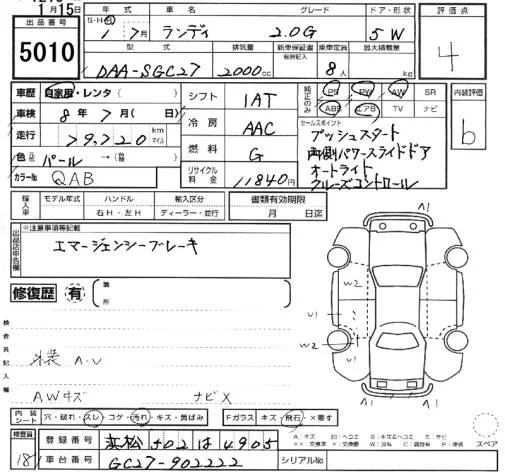 1月15日
出品番号
5010
年式 車名 グレード ドア・形状
S・H・R
1年7月 ランディ 2.0G 5W
型式 排気量 新車保証書 乗車定員 最大積載量
有無記入
DAA-SGC27 2000cc 8人 kg
評価点
4
車歴 自家用・レンタ( )
車検 8年7月( 日)
走行 79,720 km マイル
色 パール →( )
カラーNo QAB
シフト 1AT
冷房 AAC
燃料 G
リサイクル料金 11840円
純正のみ PS PW AW SR
ABS エアB TV ナビ
セールスポイント
プッシュスタート
両側パワースライドドア
オートライト
クルーズコントロール
内装評価
b
輸入車 モデル年式 ハンドル 輸入区分 書類有効期限
年 右H・左H ディーラー・並行 月 日迄
出品店申告欄
※注意事項等記載
エマージェンシーブレーキ
修復歴 有 箇所
検査員記入欄
外装 A.U
AWキズ ナビX
A1 A1
W2
U1 U1
W2
A1 A1
内装シート 穴・破れ・スレ・コゲ・汚れ・キズ・黄ばみ Fガラス キズ・飛石・×要す
検査員
181
登録番号 浜松 502 は 4905
車台番号 GC27-902222 シリアルNo
スペア